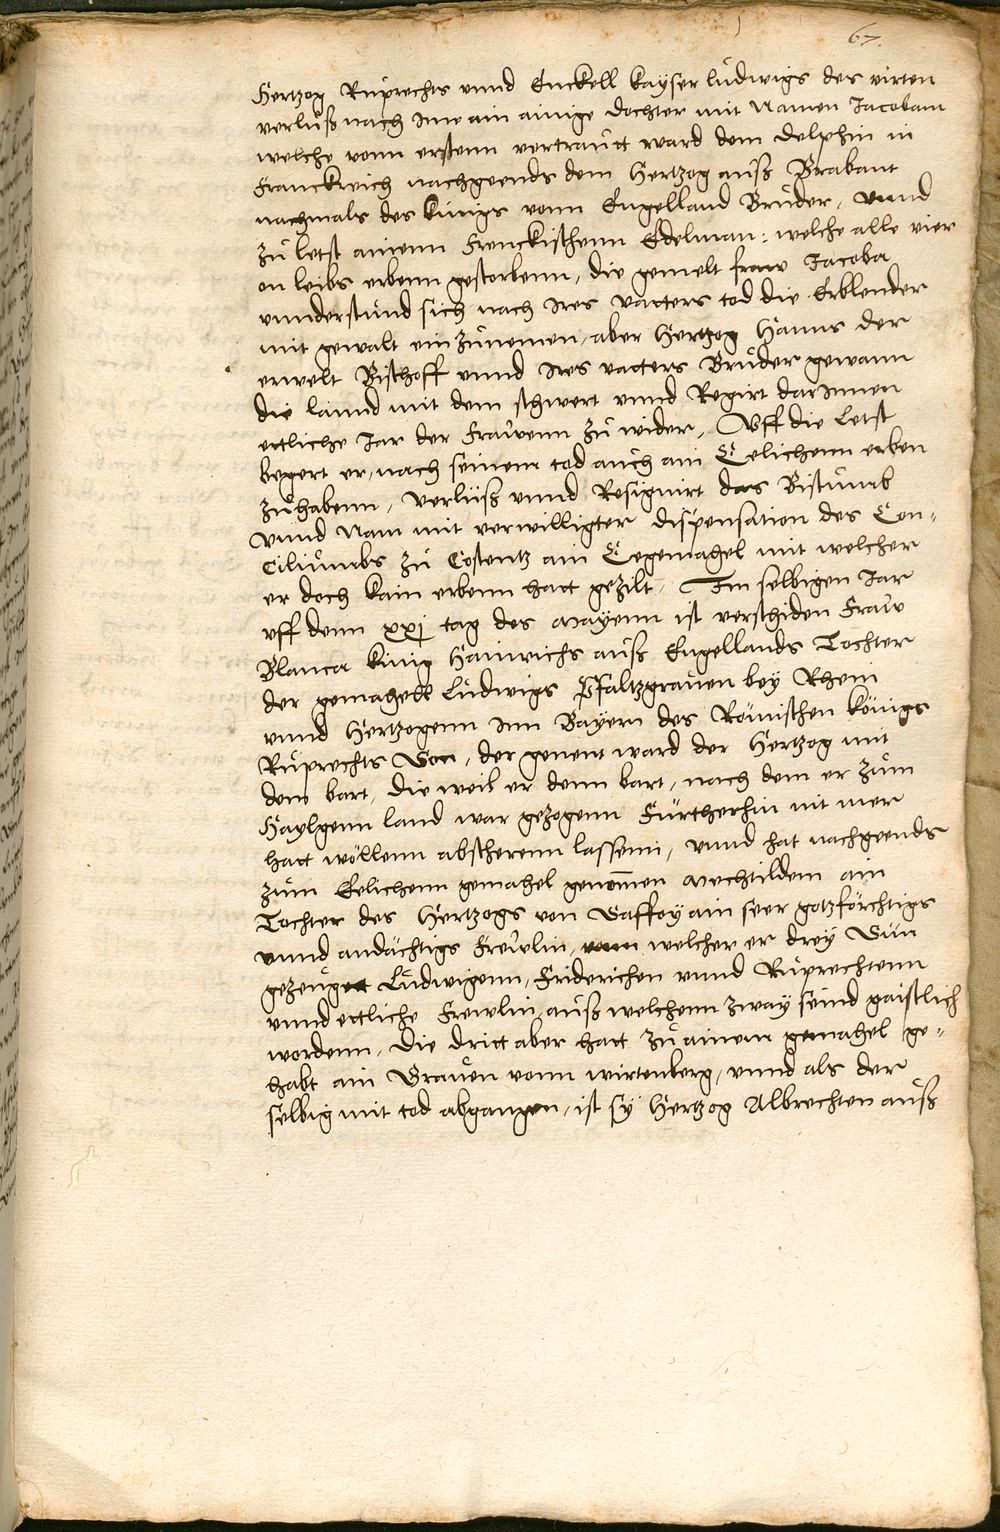 67.
Hertzog Růprechts vnnd Enckell kayser ludwigs des virten
verlůß nach ime ain ainige dochter mit Namen Jacobam
welche vonn erstenn vertraůtt ward dem Delphin in
Franckreich nachgeends dem Hertzog auß Brabant
nachmals des künigs vonn Engelland Brůder, vnnd
zů letst ainenn Frenckischenn Edelman: welche alle vier
on leibs erbenn gestorbenn, die gemelt fraw Jacoba
vnnderstůnd sich nach ires vatters tod die Erblender
mit gewalt ein zůnemen, aber Hertzog Hanns der
erwelt Bischoff vnnd ires vatters Brůder gewann
die lannd mit dem schwert vnnd Regirt darinnen
ettliche Jar der Fraẅenn zů wider, Vff die Letst
begert er, nach seinem tod aůch ain Eelichenn erben
zůhabenn, Verlüß vnnd Resignirt das Bistůmb
vnnd Nam mit verwilligter dispensation des Con-
ciliůmbs zů Costentz ain Eegemahel mit welcher
er doch kain erbenn hatt gezilt, Im selbigen Jar
vff denn xxj tag des mayenn ist verschiden Fraẅ
Blanca künig Hainrichs auß Engellands Tochter
der gemahell Lůdwigs Pfaltzgraůen bey Rhein
vnnd Hertzogenn inn Bayern des Römischen königs
Růprechts Son, der genent ward der Hertzog mit
dem bart, die weil er denn bart, nach dem er zům
Haylgenn land war gezogenn Fürtherhin nit mer
hatt wöllenn abscherenn lassenn, vnnd hat nachgeends
zům Eelichenn gemahel genommen mechtildem ain
Tochter des Hertzogs von Saffoy ain seer gotzförchtigs
vnnd andächtigs Freẅlin, vonn welcher er drey Sün
gezeůgtt Lůdwigenn, Friderichen vnnd Růprechtenn
vnnd ettliche Frewlin, aůß welchenn zway seind gaistlich
wordenn, Die dritt aber hatt zů ainem gemahel ge-
habt ain Graůen vonn wirtenberg, vnnd als der
selbig mit tod abgangen, ist sÿ Hertzog Albrechten aůß